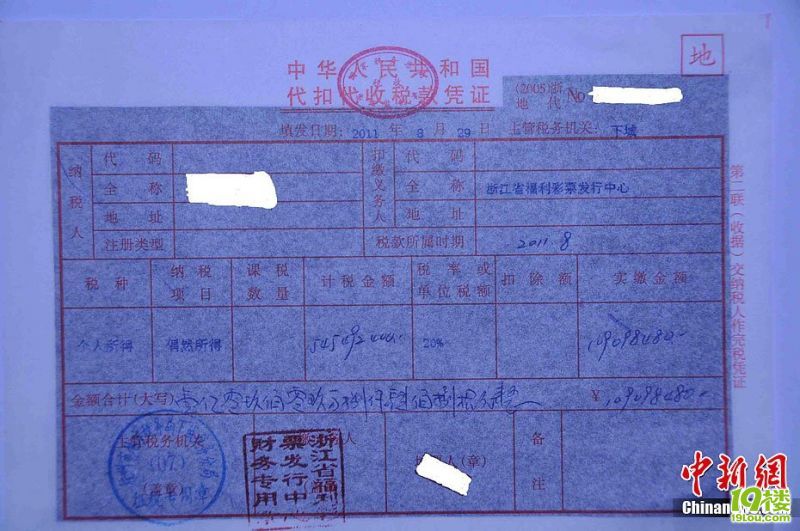 地
中华人民共和国
代扣代收税款凭证
(2005)浙
地 代 No
填发日期: 2011 年 8 月 29 日 主管税务机关: 下城
纳税人 代码 扣缴义务人 代码
全称 全称 浙江省福利彩票发行中心
地址 地址
注册类型 税款所属时期 2011.8
税种 纳税项目 课税数量 计税金额 税率或单位税额 扣除额 实缴金额
个人所得 偶然所得 545492400 20% 109098480
金额合计(大写) ¥ 109098480
主管税务机关
(07)
(盖章)
浙江省福利
票发行中
财务专用
人(章)
备注
第二联(收据)交纳税人作完税凭证
中新網
19楼
19lou.com